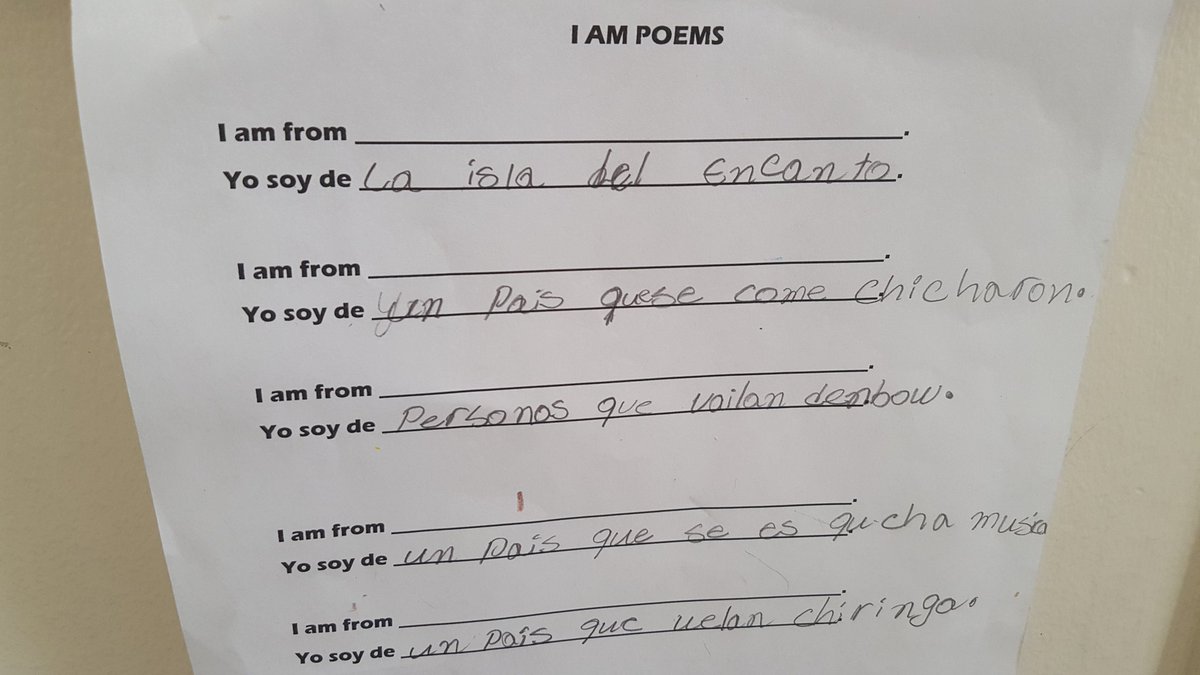 I AM POEMS
I am from ____.
Yo soy de La isla del Encanto.
I am from ____.
Yo soy de un pais quese come chicharon.
I am from ____.
Yo soy de Personas que vailan denbow.
I am from ____.
Yo soy de un pais que se es qucha musica
I am from ____.
Yo soy de un pais que uelan chiringa.